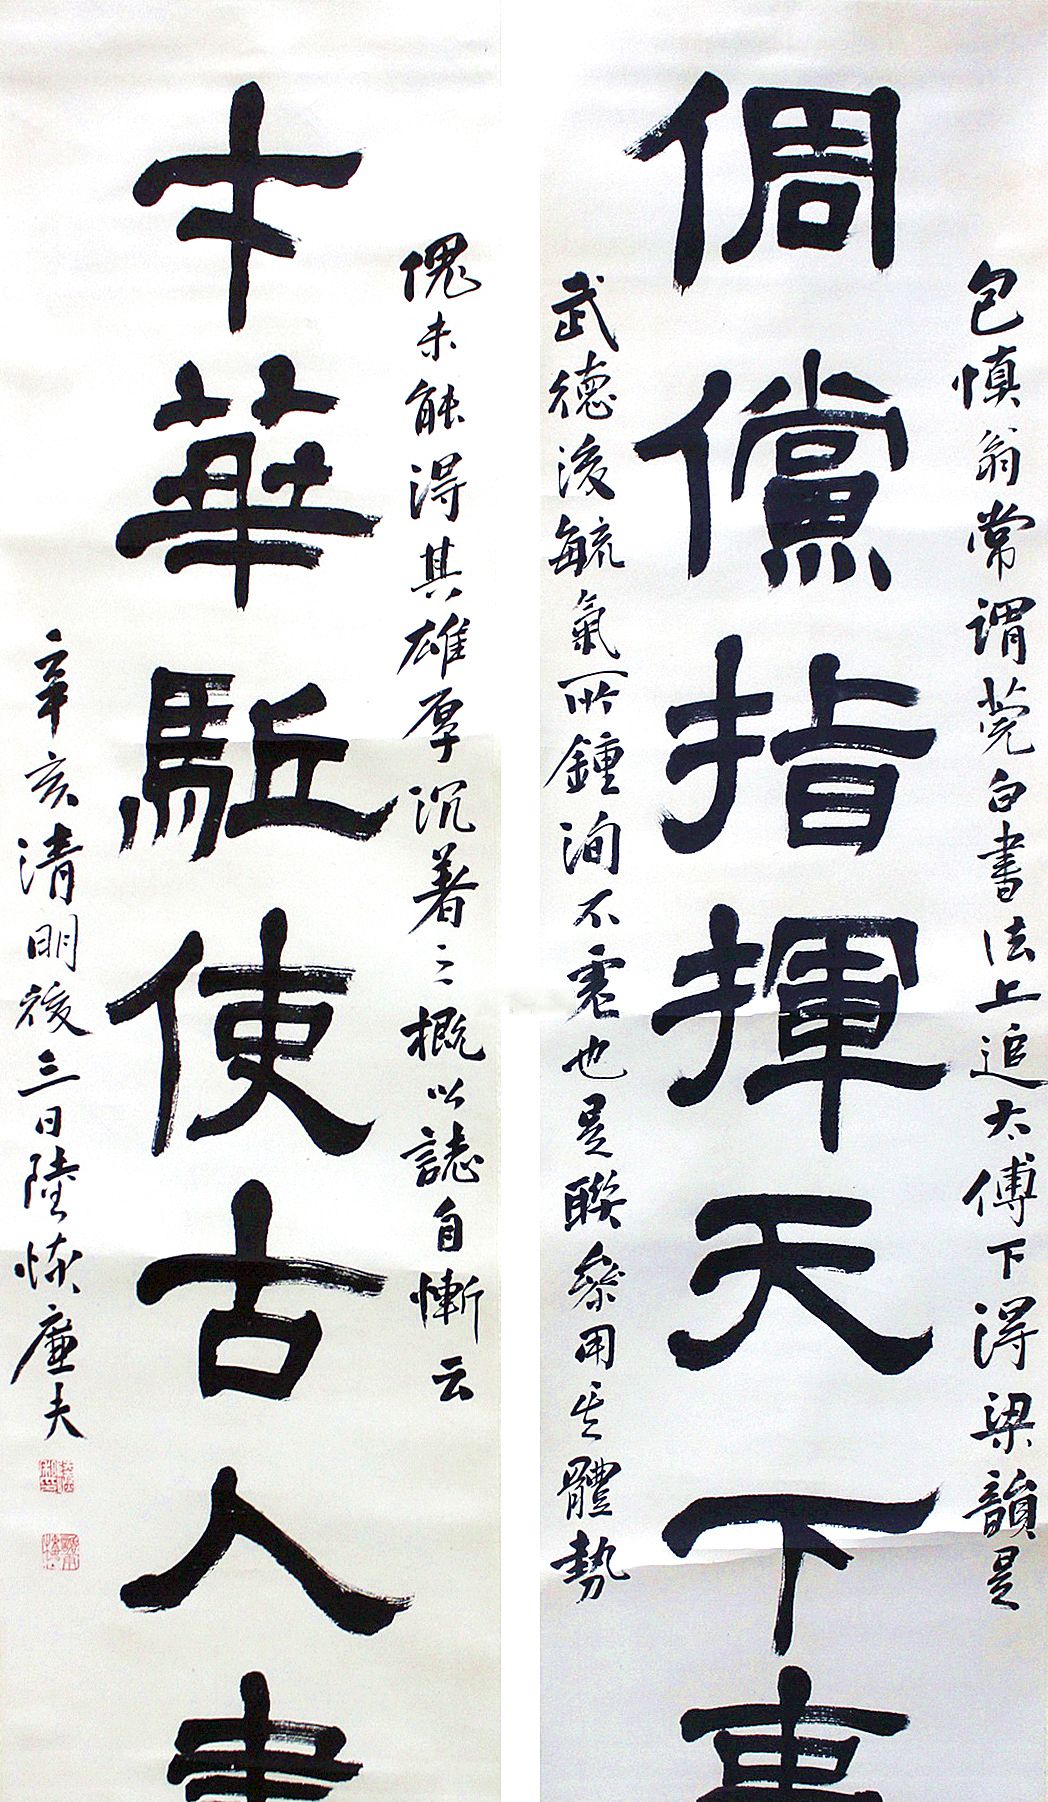 包慎翁常謂莞白書法上追太傅下得梁韻是
倜儻指揮天下事
武德後毓氣所鍾洵不虛也是聯參用其體勢
愧未能得其雄厚沉著之概以誌自慚云
才華駈使古人書
辛亥清明後三日陸恢廉夫